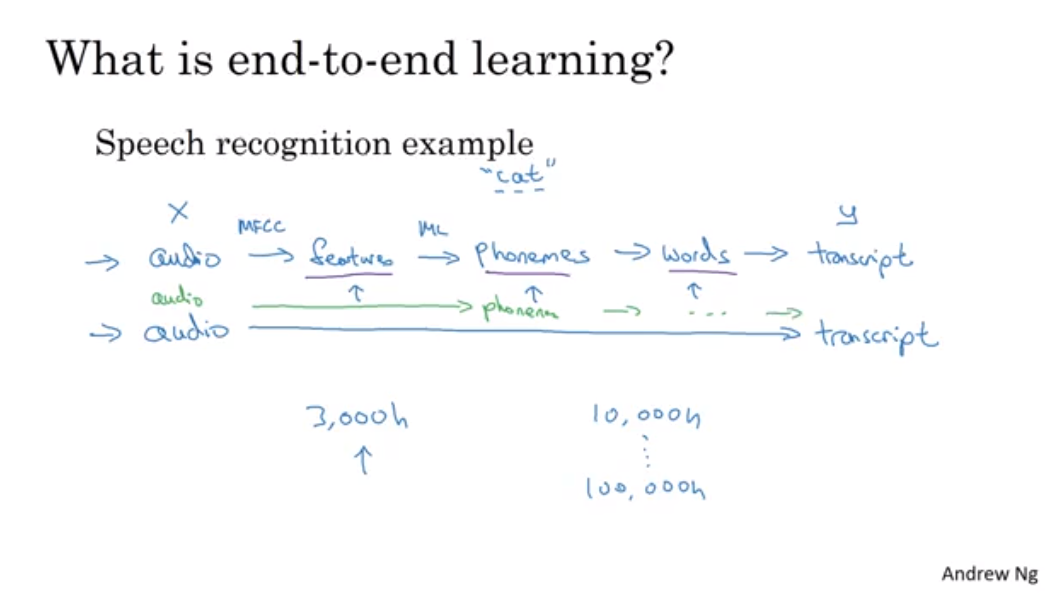 What is end-to-end learning?
Speech recognition example
"cat"
X
y
MFCC
ML
→ audio → features → phonemes → words → transcript
↑ ↑ ↑
audio → phonem → ... →
→ audio → transcript
3,000h 10,000h
↑
100,000h
Andrew Ng